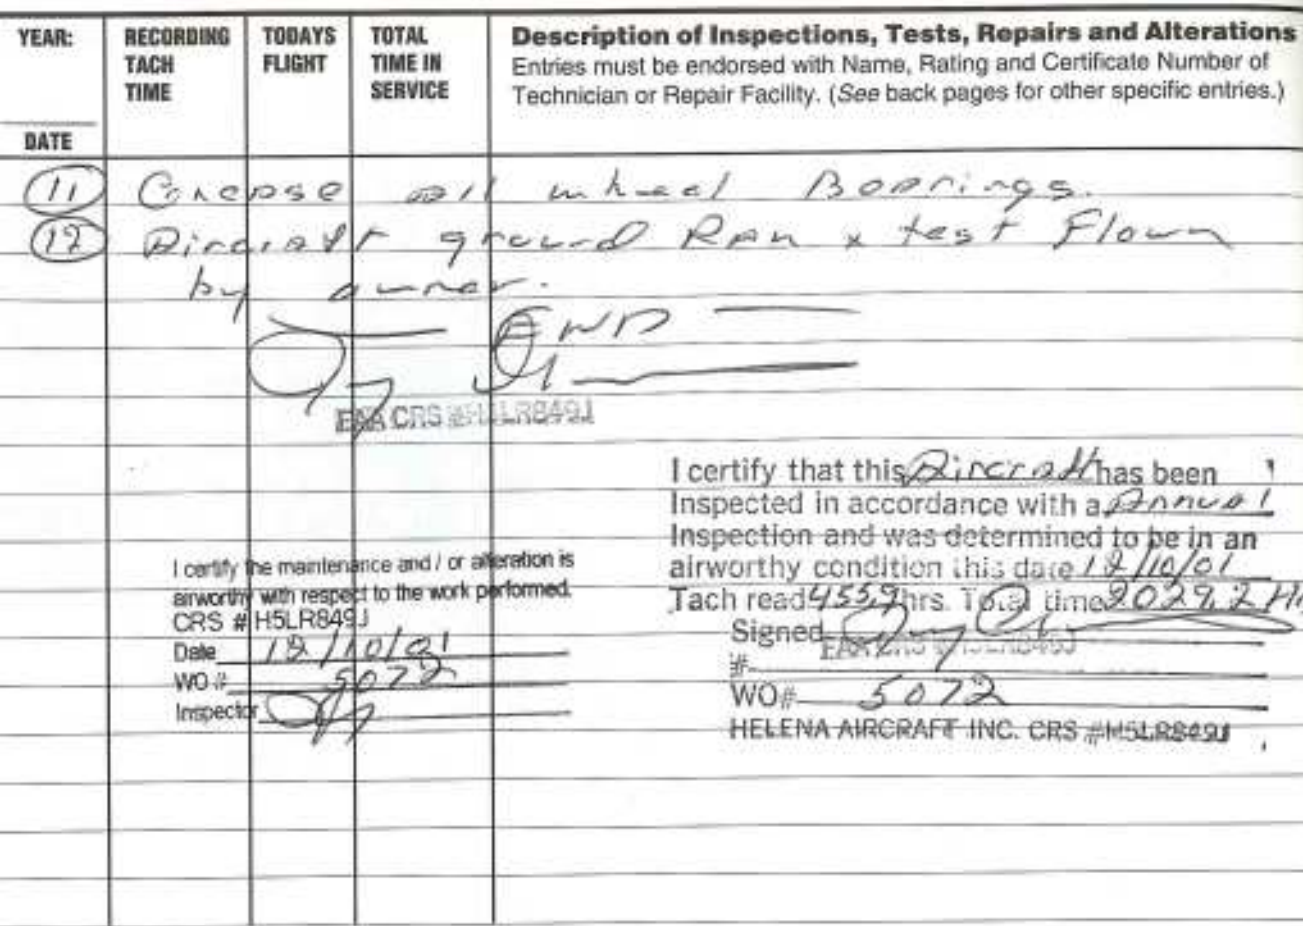 YEAR:
DATE
RECORDING TACH TIME
TODAYS FLIGHT
TOTAL TIME IN SERVICE
Description of Inspections, Tests, Repairs and Alterations
Entries must be endorsed with Name, Rating and Certificate Number of
Technician or Repair Facility. (See back pages for other specific entries.)
11 Grease all wheel Bearings.
12 Aircraft ground Ran & test Flown
by owner.
END
FAA CRS #H5LR849J
I certify the maintenance and / or alteration is
airworthy with respect to the work performed.
CRS # H5LR849J
Date 12/10/01
WO # 5072
Inspector
I certify that this Aircraft has been
Inspected in accordance with a Annual
Inspection and was determined to be in an
airworthy condition this date 12/10/01
Tach read 455.9 hrs. Total time 2029.2 Hr
Signed
FAA CRS #H5LR849J
#
WO# 5072
HELENA AIRCRAFT INC. CRS #H5LR849J